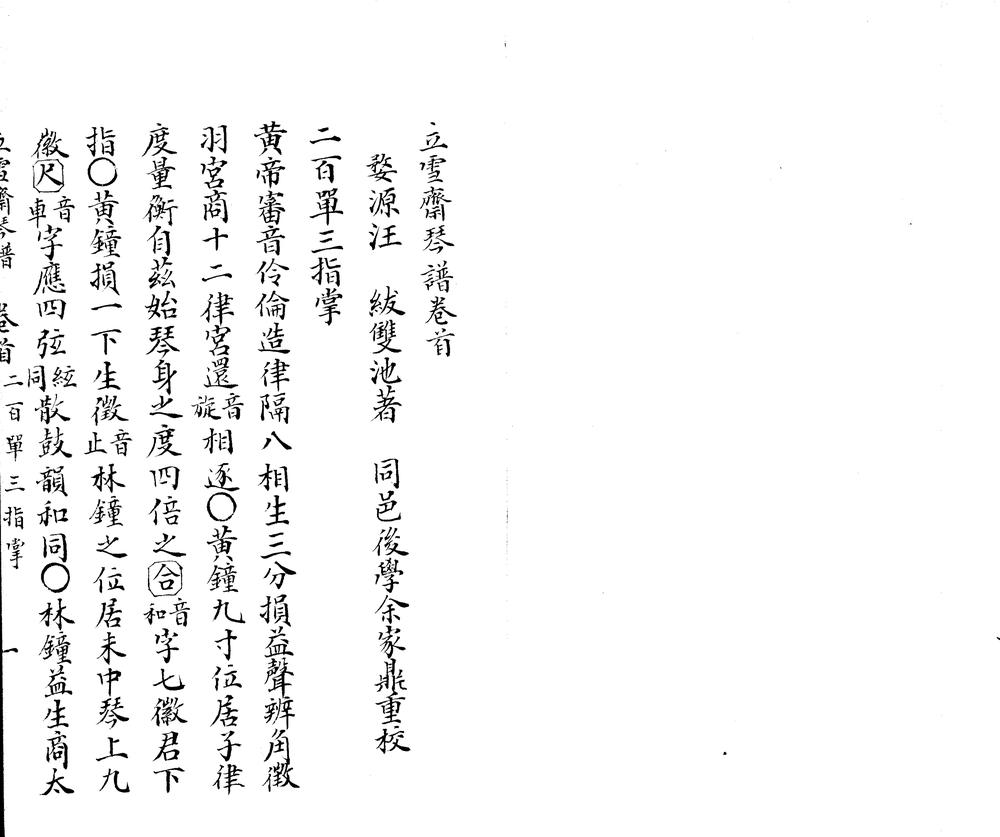 立雪齋琴譜卷首
婺源汪　紱雙池著　同邑後學余家鼎重校
二百單三指掌
黃帝審音伶倫造律隔八相生三分損益聲辨角徵
羽宮商十二律宮還音旋相逐〇黃鐘九寸位居子律
度量衡自茲始琴身之度四倍之合音和字七徽君下
指〇黃鐘損一下生徵音止林鐘之位居未中琴上九
徽尺音車字應四弦絃同散鼓韻和同〇林鐘益生商太
立雪齋琴譜　卷首　二百單三指掌　一